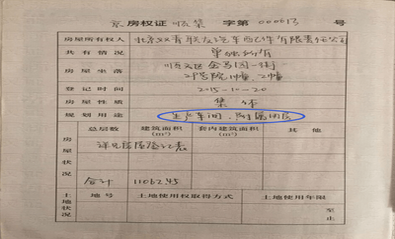 京 房权证 顺集 字第 000613 号
房屋所有权人 北京XX青年汽车配件有限责任公司
共有情况 单独所有
房屋坐落 顺义区
21号院1幢、2幢
登记时间 2015-10-20
房屋性质 集体
规划用途 生产车间、附属用房
房屋状况 总层数 建筑面积(m²) 套内建筑面积(m²) 其他
详见房屋登记表
合计 11062.45
土地状况 地号 土地使用权取得方式 土地使用年限
至 止